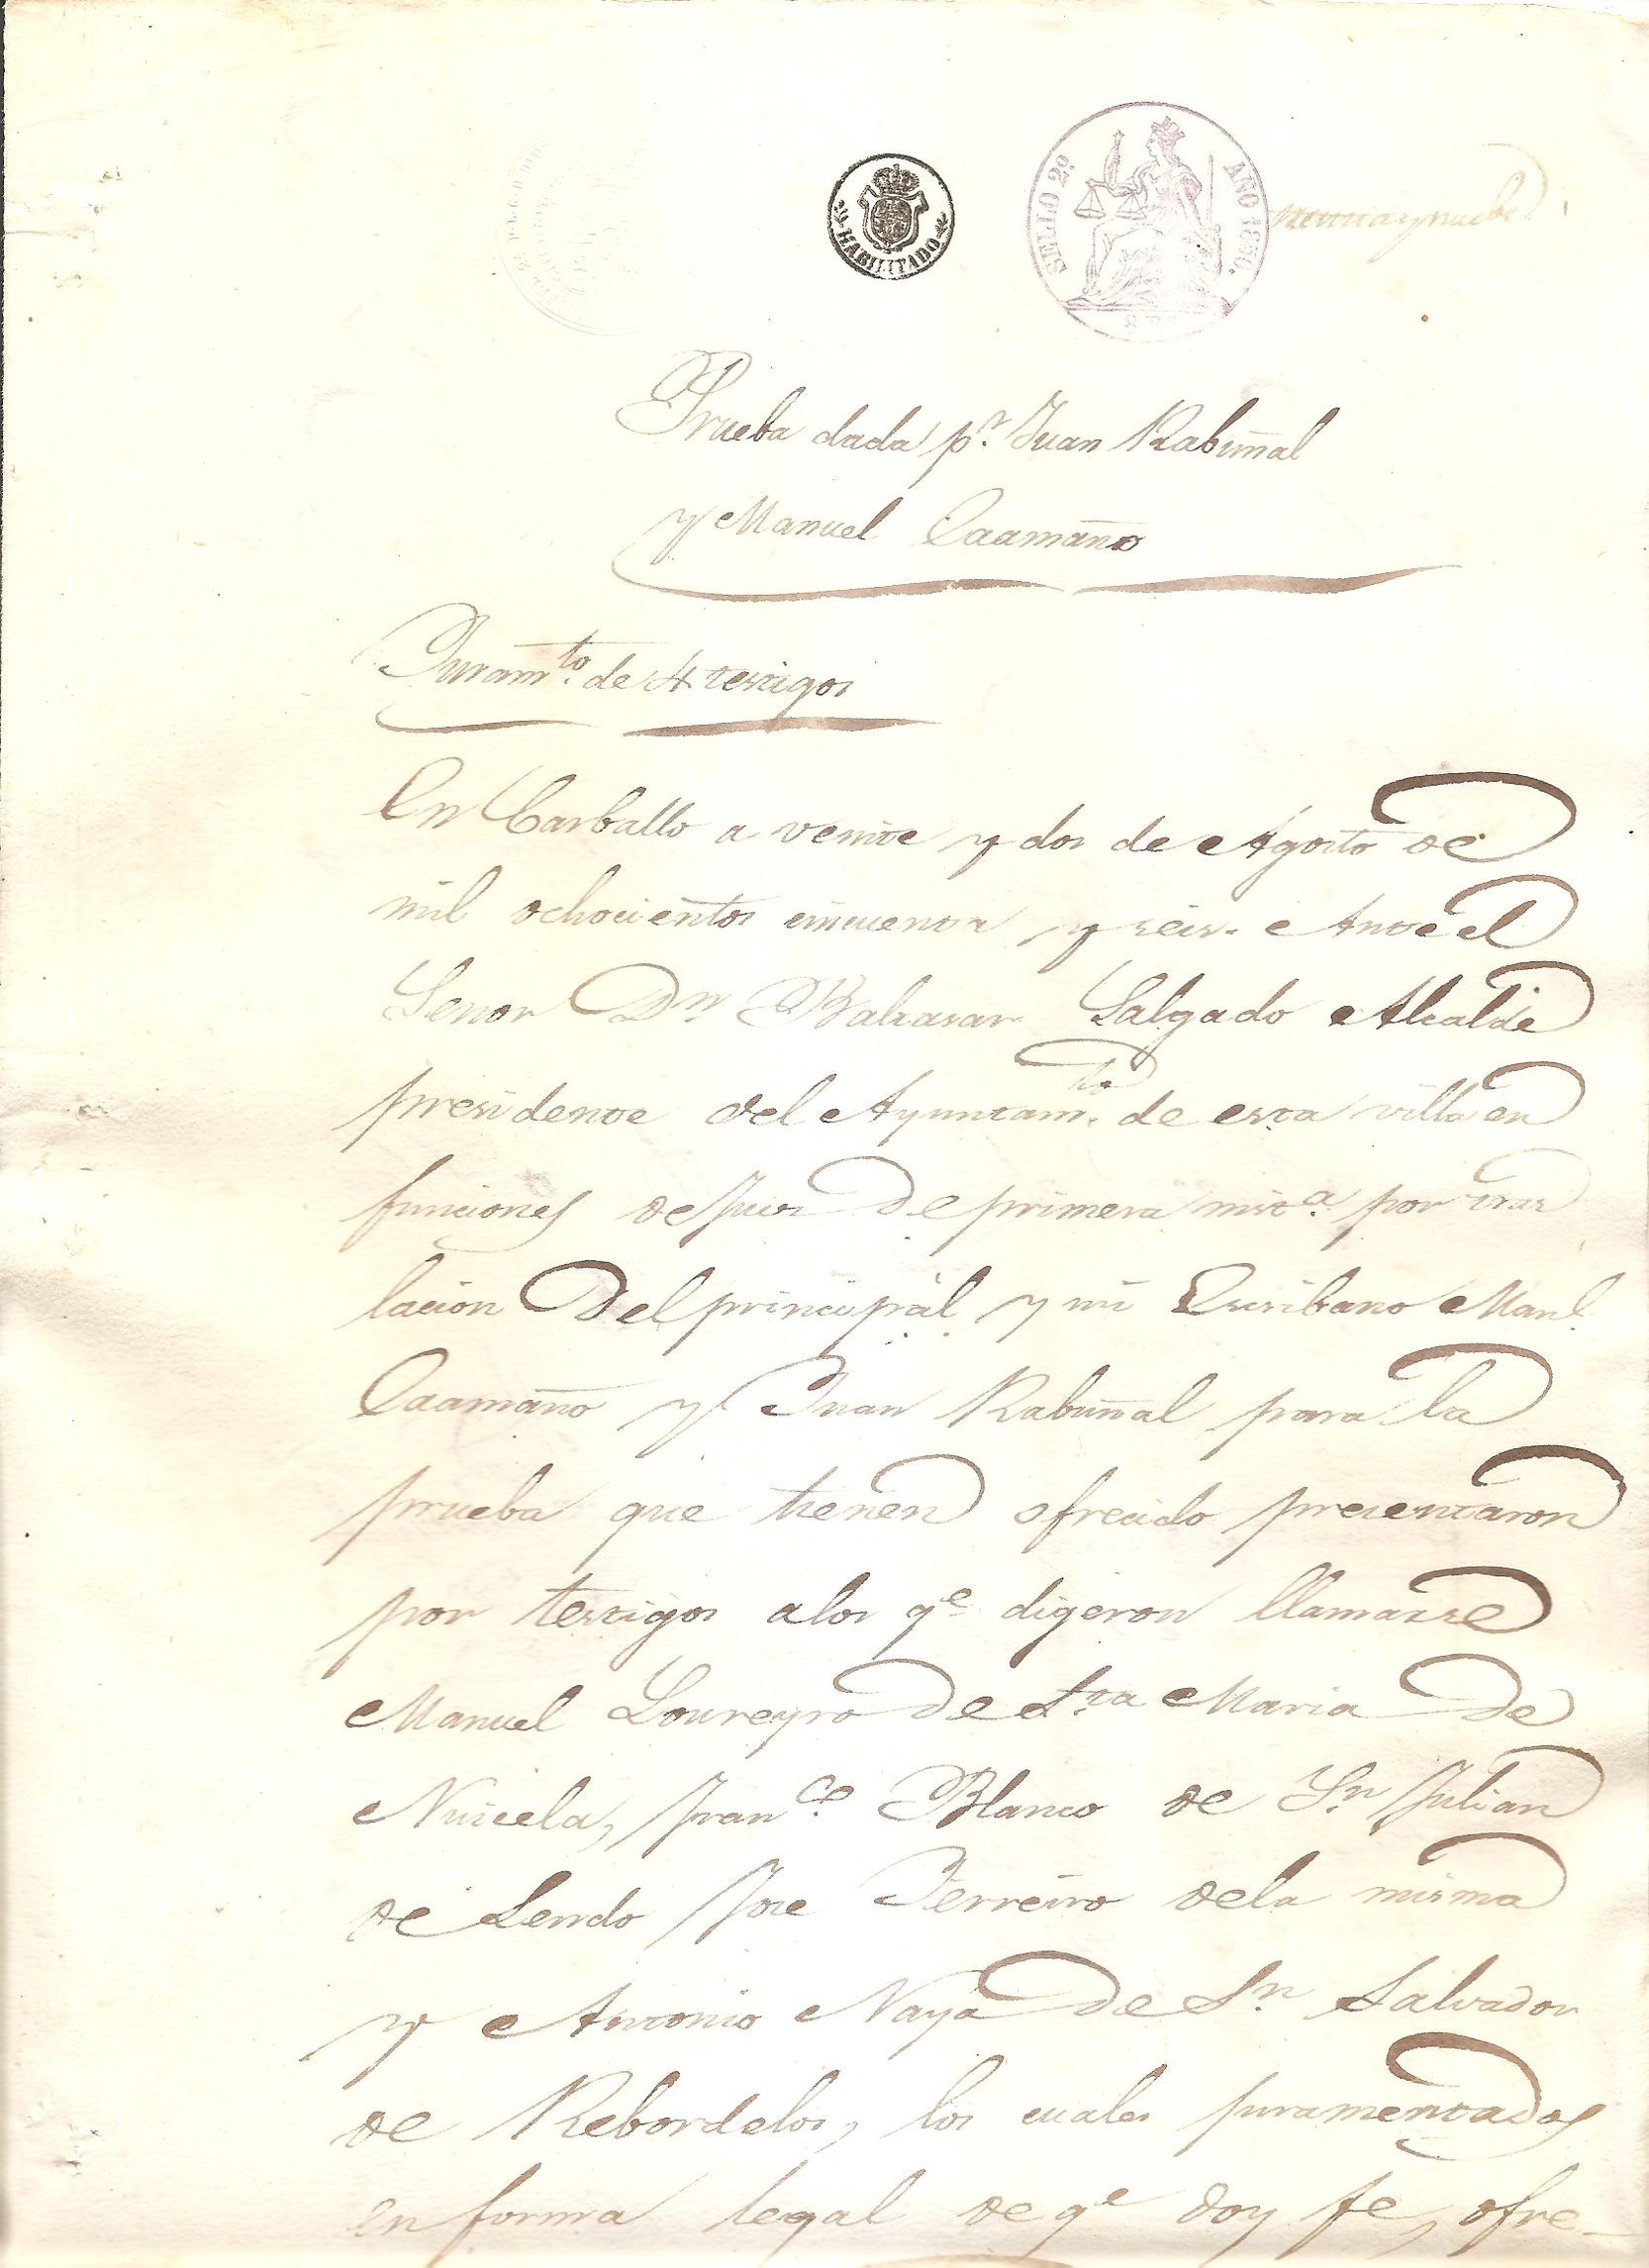 HABILITADO
SELLO 2º AÑO 1856.
y nuebe
Prueba dada pr. Juan Rabuñal
y Manuel Caamaño
Juramto. de 4 testigos
En Carballo a veinte y dos de Agosto de
mil ochocientos cincuenta y seis. Ante el
Senor Dn Baltasar Salgado Alcalde
presidente del Ayuntamto. de esta villa en
funciones de Juez de primera insta. por tras
lacion del principal y mi Escribano Manl.
Caamaño y Juan Rabuñal para la
prueba que tienen ofrecido presentaron
por testigos alos qe digeron llamarse
Manuel Loureyro de Sta Maria de
Nuicela, Franco. Blanco de Sn Julian
de Lendo Jose Ferreiro dela misma
y Antonio Naya de Sn Salvador
de Rebordelos, los cuales juramentados
en forma legal de qe doy fe, ofre-